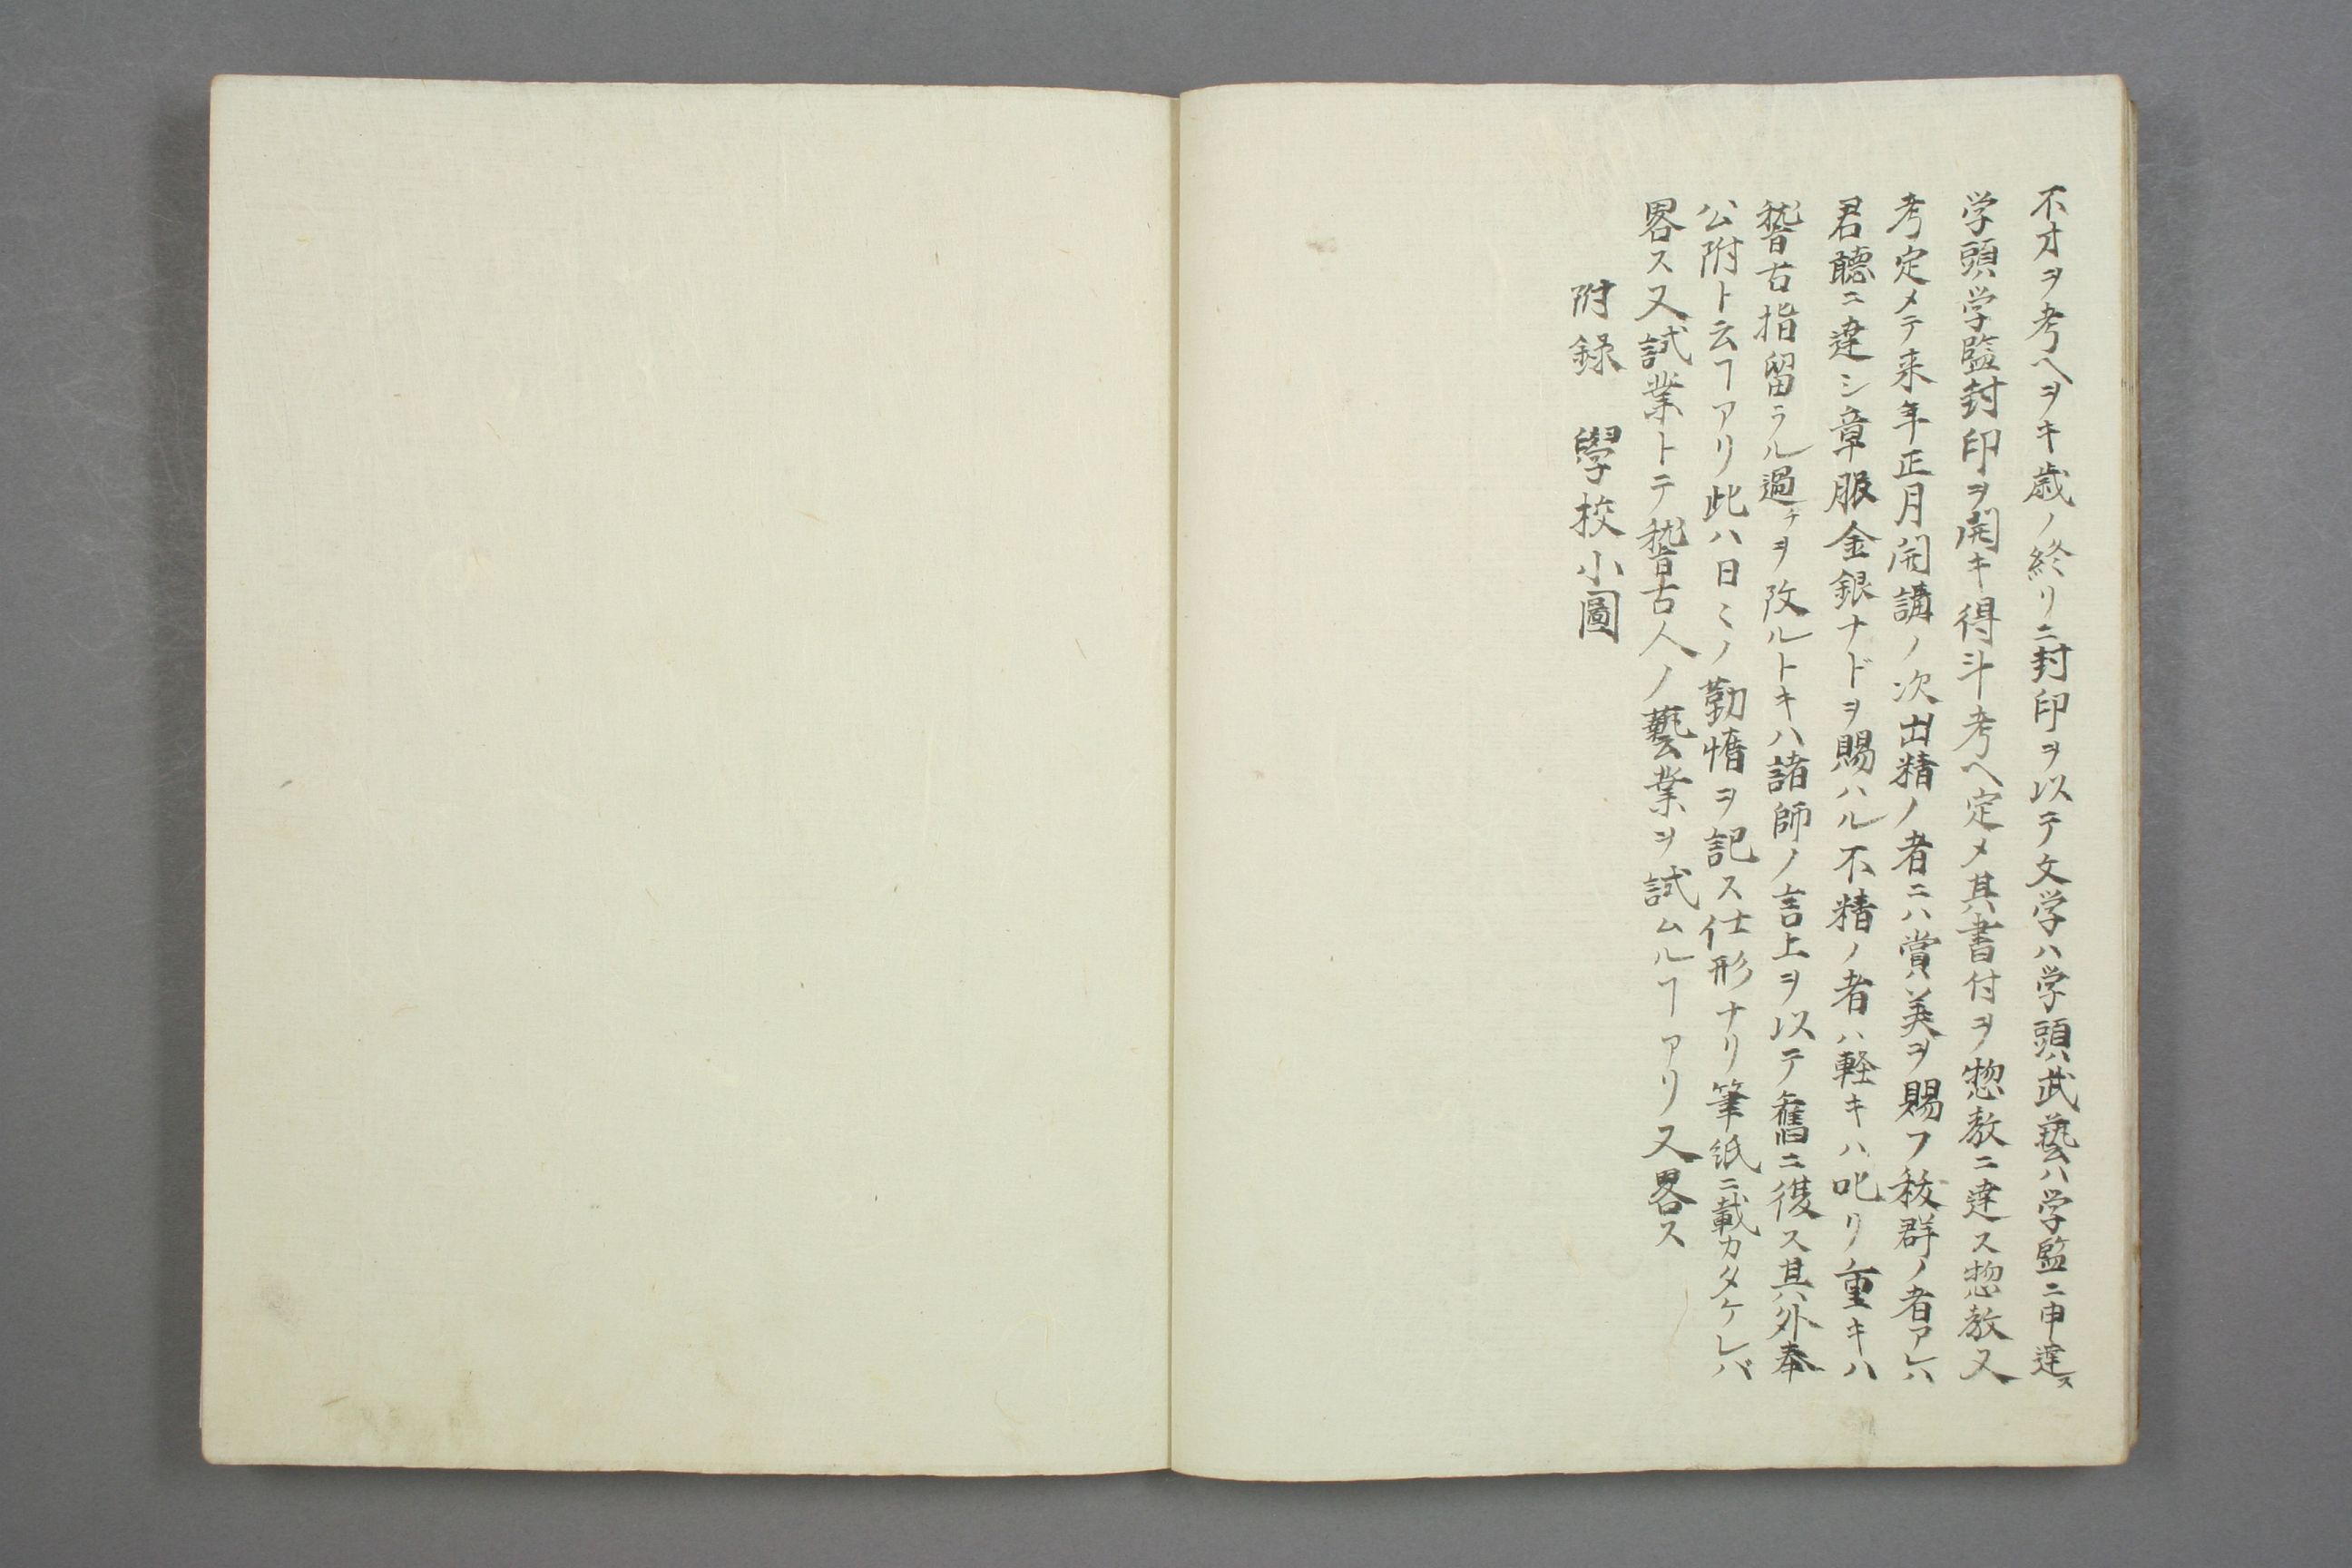 不才ヲ考ヘヲキ歳ノ終リニ封印ヲ以テ文学ハ学頭武藝ハ学監ニ申達ス
学頭学監封印ヲ開キ得斗考ヘ定メ其書付ヲ惣教ニ達ス惣教又
考定メテ来年正月開講ノ次出精ノ者ニハ賞美ヲ賜フ秡群ノ者アレハ
君聴ニ達シ章服金銀ナドヲ賜ハル不精ノ者ハ軽キハ叱リ重キハ
稽古指留ラル過チヲ改ルトキハ諸師ノ言上ヲ以テ舊ニ復ス其外奉
公附ト云ヿアリ此ハ日ミノ勤惰ヲ記ス仕形ナリ筆紙ニ載カタケレバ
畧ス又試業トテ稽古人ノ藝業ヲ試ムルヿアリ又畧ス
附録 學校小圖